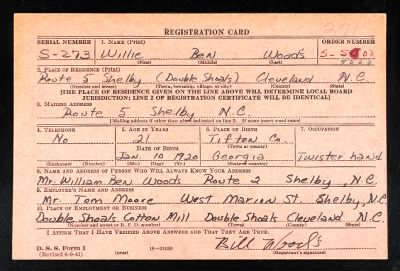 REGISTRATION CARD
SERIAL NUMBER 1. NAME (Print) ORDER NUMBER
S-273 Willie Ben Woods S-5
(First) (Middle) (Last)
2. PLACE OF RESIDENCE (Print)
Route 5 Shelby (Double Shoals) Cleveland N.C.
(Number and street) (Town, township, village, or city) (County) (State)
[THE PLACE OF RESIDENCE GIVEN ON THE LINE ABOVE WILL DETERMINE LOCAL BOARD
JURISDICTION; LINE 2 OF REGISTRATION CERTIFICATE WILL BE IDENTICAL]
3. MAILING ADDRESS
Route 5 Shelby N.C.
[Mailing address if other than place indicated on line 2. If same insert word same]
4. TELEPHONE 5. AGE IN YEARS 6. PLACE OF BIRTH 7. OCCUPATION
No 21 Tifton Co.
DATE OF BIRTH (Town or county)
Jan. 10 1920 Georgia Twister hand
(Mo.) (Day) (Yr.) (State or country)
8. NAME AND ADDRESS OF PERSON WHO WILL ALWAYS KNOW YOUR ADDRESS
Mr. William Ben Woods Route 2 Shelby, N.C.
9. EMPLOYER'S NAME AND ADDRESS
Mr. Tom Moore West Marion St. Shelby, N.C.
10. PLACE OF EMPLOYMENT OR BUSINESS
Double Shoals Cotton Mill Double Shoals Cleveland N.C.
(Number and street or R. F. D. number) (Town) (County) (State)
I AFFIRM THAT I HAVE VERIFIED ABOVE ANSWERS AND THAT THEY ARE TRUE.
D. S. S. Form 1 16-21630 Bill Woods
(Revised 6-9-41) (over)